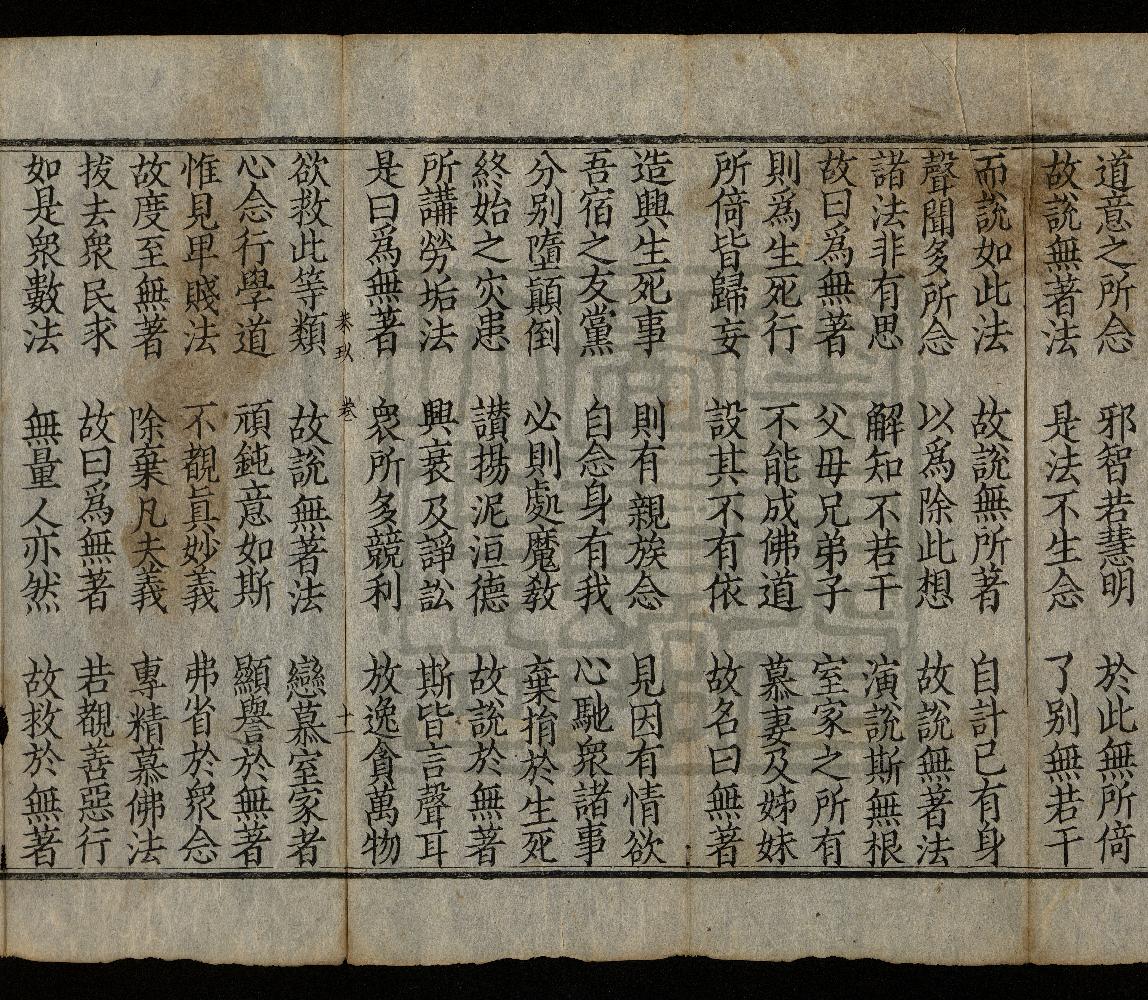 道意之所念　邪智若慧明　於此無所倚
故說無著法　是法不生念　了別無若干
而說如此法　故說無所著　自計已有身
聲聞多所念　以爲除此想　故說無著法
諸法非有思　解知不若干　演說斯無根
故曰爲無著　父母兄弟子　室家之所有
則爲生死行　不能成佛道　慕妻及姊妹
所倚皆歸妄　設其不有依　故名曰無著
造興生死事　則有親族念　見因有情欲
吾宿之友黨　自念身有我　心馳衆諸事
分別墮顚倒　必則處魔教　棄捐於生死
終始之灾患　讃揚泥洹德　故說於無著
所講勞垢法　興衰及諍訟　斯皆言聲耳
是曰爲無著　衆所多競利　放逸貪萬物
卷　十一
欲救此等類　故說無著法　戀慕室家者
心念行學道　頑鈍意如斯　顯譽於無著
惟見卑賤法　不覩眞妙義　弗省於衆念
故度至無著　除棄凡夫義　專精慕佛法
拔去衆民求　故曰爲無著　若覩善惡行
如是衆數法　無量人亦然　故救於無著